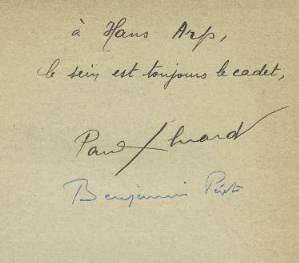 à Hans Arp,
le sein est toujours le cadet,
Paul Eluard
Benjamin Péret